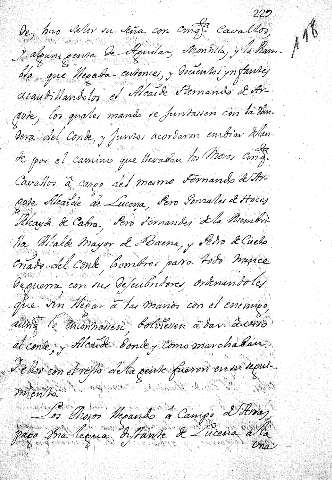 229
118
de, hizo salir su seña con cinq.ta Cavallos
y alguna gente de Aguilar, Montilla, y la Ram-
bla, que llegaba entonces, y docientos ynfantes
acaudillandolos el Alcaide Hernando de Ar-
gote, los quales mando se juntassen con la Van-
dera del Conde, y juntos acordaron embiar delan-
te por el camino que llevaban los Moros cinq.ta
Cavallos à cargo del mesmo Fernando de Ar-
gote Alcaide de Lucena, Pero Gonzales de Hoces
Alcayde de Cabra, Pero Fernandes de la Membri-
lla Alcalde Mayor de Baena, y Pedro de Cueto
criado del Conde hombres para todo menester
de guerra con sus descubridores ordenandoles
que sin llegar à las manos con el enemigo,
bolviesen à dar aviso
al conde, y Alcaide donde y como marchaban.
Y ellos con el resto de la gente fueron en su segui-
miento.
Los Moros llegando à Campo de Aras,
pago una legua distante de Lucena à la
una